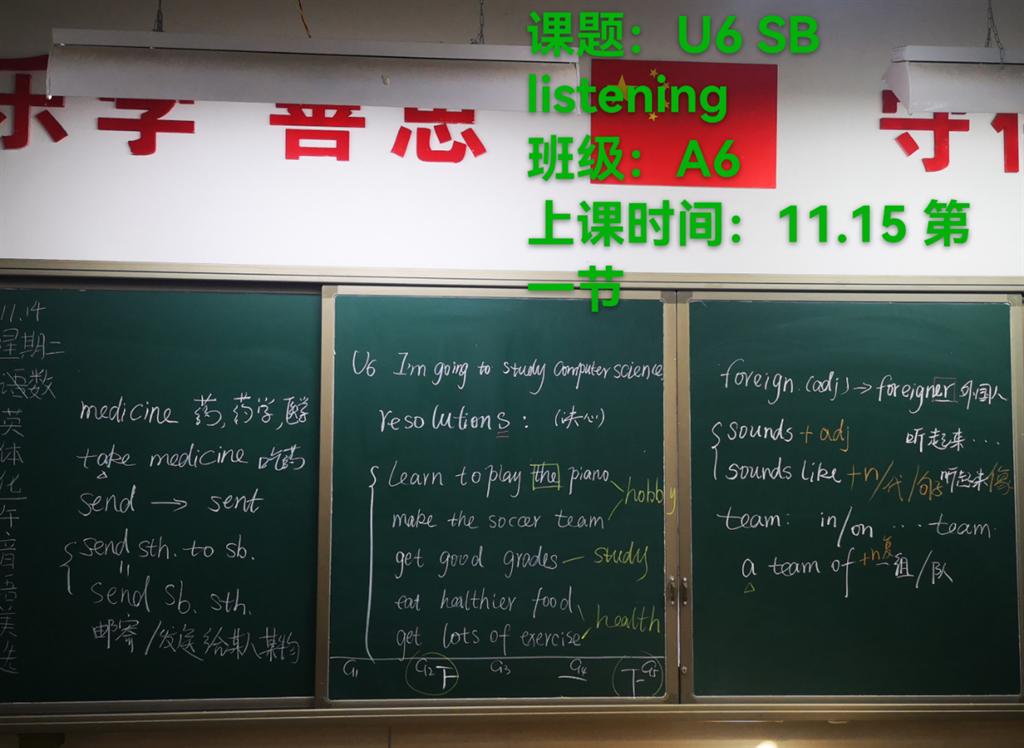 课题：U6 SB
listening
班级：A6
上课时间：11.15 第
一节
乐学 善思
守
11.14
星期二
语数
英
体
化
午
音
语
美
选
medicine 药,药学,医学
take medicine 吃药
send → sent
send sth. to sb.
send sb. sth.
邮寄/发送给某人某物
U6 I'm going to study computer science
resolutions: (决心)
Learn to play the piano
make the soccer team
hobby
get good grades — study
eat healthier food
get lots of exercise
health
G1 G2 下 G3 G4 下 G5
foreign (adj) → foreigner 外国人
sounds + adj 听起来...
sounds like +n/代/句子 听起来像
team: in/on ... team.
a team of +n复 一组/队